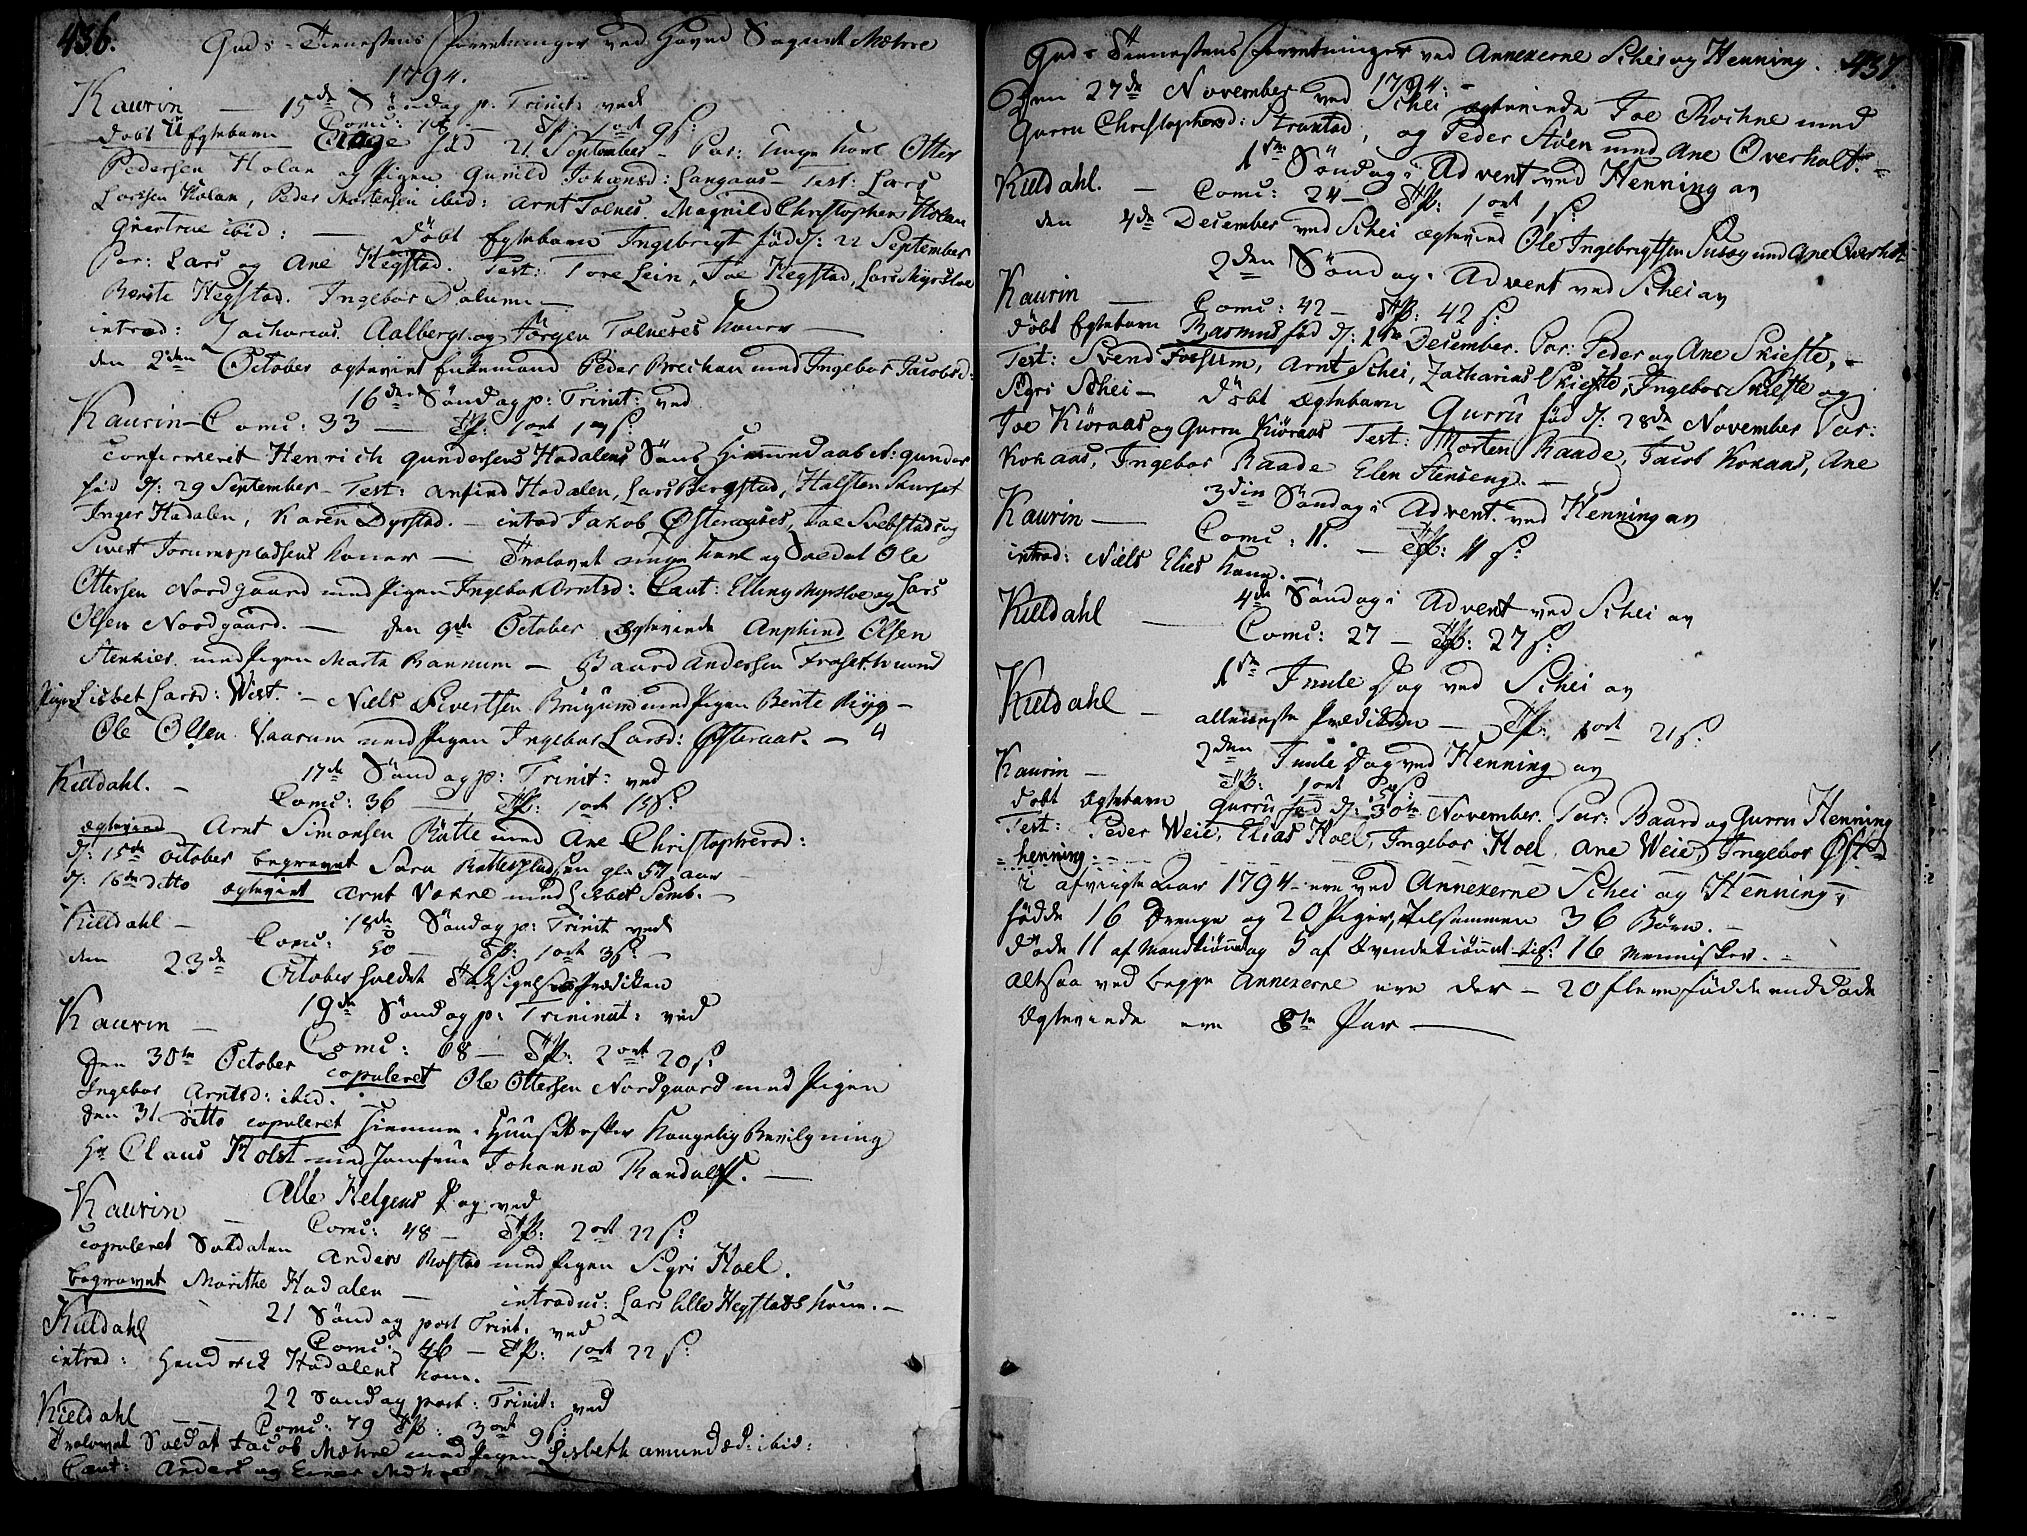 436.
Guds-Tienestens Forretninger ved Hoved Sognet Mæhre
1794.
Kaurin — 15de Søndag p: Trinit: ved
Comu: 18 — Tfl: 1 ort 9 s:
døbt Ægtebarn født 21 September — Par: unge Karl Otter
Pedersen Holan og Pigen Gunild Johansd: Langaas — Test: Lars
Larsen Holan, Peder Mortensen ibid: Arnt Tolnes. Magnild Christophers Holan
Giertrue ibid: — Døbt Egtebarn Ingebrigt fød d: 22 September
Par: Lars og Ane Hegstad. Test: Tore Lein, Joe Hegstad, Lars Myrsloe
Berite Hegstad. Ingebor Dalum —
introd: Zacharias Aalbergs og Jørgen Tolneses Koner —
den 2den October egteviet Enkemand Peder Breihan med Ingebor Jacobsd:
16den Søndag p: Trinit: ved
Kaurin — Comu: 33 — Tfl: 1 ort 17 s
confirmeret Henrich Gundersens Hadalens Søns hiemmedaab N: Gunder
fød d: 29 September — Test: Anfind Hadalen, Lars Bergstad, Halsten Skurset
Inger Hadalen, Karen Dyrstad. — introd Jakob Østeraases, Joe Svebstads og
Sivert Forumspladsens Koner — Trolovet unge Karl og Soldat Ole
Ottersen Nordgaard med Pigen Ingebor Arntsd: Caut: Elling Myrsloe og Lars
Olsen Nordgaard. — den 9de October Egteviede Anphind Olsen
Stenkier med Pigen Marta Rannum — Baard Andersen Fraset med
Pigen Lisbet Larsd: Wist. — Niels Sivertsen Brugum med Pigen Berite Ryg —
Ole Olsen Vaarum med Pigen Ingebor Larsd: Østeraas. — 4
Kieldahl. — 17de Søndag p: Trinit: ved
Comu: 36 — Tfl: 1 ort 15 s:
Egteviet Arnt Simonsen Rätte med Ane Christophersd:
d: 15de October begravet Sara Rattespladsen gl: 57 aar —
d: 16de Ditto Egteviet Arnt Vænne med Lisbet Semb. —
Kieldahl — 18de Søndag p: Trinit ved
Comu: 50 — Tfl: 1 ort 3 s: —
den 23de October holdet Taksigelses Prædiken
Kaurin — 19de Søndag p: Trininit: ved
Comu: 68 — Tfl: 2 ort 20 s:
Den 30te October copuleret Ole Ottersen Nordgaard med Pigen
Ingebor Arntsd: ibid.
Den 31 ditto copuleret hiemme i Huuset efter Kongelig Bevilgning
Hr Claus Holst med Jomfrue Johanna Randulff. —
Kaurin — Alle Helgens Dag ved
Comu: 48 — Tfl: 2 ort 22 s:
copuleret Soldaten Anders Rostad med Pigen Sigri Hoel.
begravet Marithe Hadalen — introdu: Lars lille Hegstads Kone. —
Kieldahl — 21 Søndag post Trinit. ved
Comu: 46 — Tfl: 1 ort 22 s:
introd: Hendrik Hadalens Kone. —
22 Søndag post: Trinit: ved
Kieldahl — Comu: 79 Tfl: 3 ort 9 s:
Trolovet Soldat Jacob Mæhre med Pigen Lisbeth Amundsd: ibid:
Caut: Anders og Einer Mæhre —
437.
Guds Tienestens Forretninger ved Annexerne Schei og Henning.
1794.
Den 27de November ved Schei egteviede Joe Rochne med
Gurru Christophersd: Strantad, og Peder Støen med Ane Overholt. —
1ste Søndag i Advent ved Henning av
Kieldahl. — Comu: 24 — Tfl: 1 ort 1 s:
den 4de December ved Schei egteviet Ole Ingebrigtsen med Ane Overholt
2den Søndag i Advent ved Schei av
Kaurin — Comu: 42 — Tfl: 42 s:
Døbt Egtebarn Rasmus fød d: 1ste December. Par: Peder og Ane Skiefte, —
Test: Svend Fossum, Arnt Schei, Zacharias Skiefte, Ingebor Skiefte og
Sigri Schei — døbt ægtebarn Gurru fød d: 28de November Par:
Joe Kiöraas og Gurru Kiöraas Test: Morten Raade, Jacob Kokaas, Ane
Kokaas, Ingebor Raade Elen Stenseng. —
3die Søndag i Advent ved Henning av
Kaurin — Comu: 11. — Tfl: 11 s:
introd: Niels Elies Kone. —
4de Søndag i Advent ved Schei av
Kieldahl — Comu: 27 — Tfl: 27 s:
1ste Juule Dag ved Schei av
Kieldahl — alleneste Prædiken — Tfl: 1 ort 21 s:
2den Juule Dag ved Henning av
Kaurin — Tfl: 1 ort
Døbt Egtebarn Gurru fød d: 30te November. Par: Baard og Gurru Henning
Test: Peder Weie, Elias Hoel, Ingebor Hoel, Ane Weie, Ingebor Øst-
henning: —
I afvigte Aar 1794 — ere ved Annexerne Schei og Henning,
fødde 16 Drenge og 20 Piger, tilsammen 36 Børn. —
Døde 11 af Mandkiønnet og 5 af Qvindekiønnet tils: 16 Mennisker. —
altsaa ved begge Annexerne ere der — 20 flere fødde end døde
Egteviede ere 8te Par —